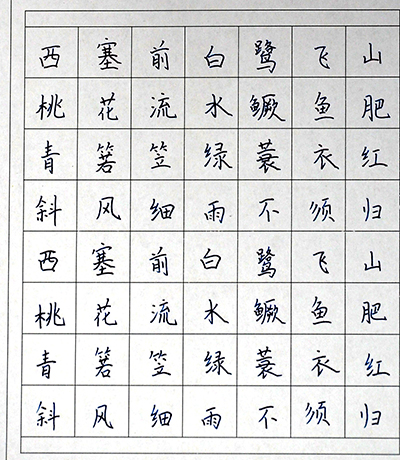 西塞前白鹭飞山
桃花流水鳜鱼肥
青箬笠绿蓑衣红
斜风细雨不须归
西塞前白鹭飞山
桃花流水鳜鱼肥
青箬笠绿蓑衣红
斜风细雨不须归